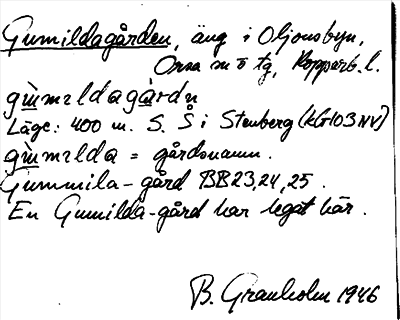 Gumildagården, äng i Oljonsbyn,
Orsa sn o tg, Kopparb. l.
gùmɪldagårdn
Läge: 400 m. S. S i Stenberg (KG103NV)
gùmɪlda = gårdsnamn.
Gummila-gård BB23,24,25.
En Gumilda-gård har legat här.
B. Granholm 1946